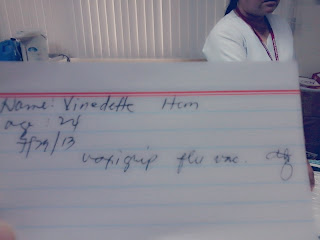 Name: Vinadette
age : 24
7/29/13
vaxigrip flu vac.